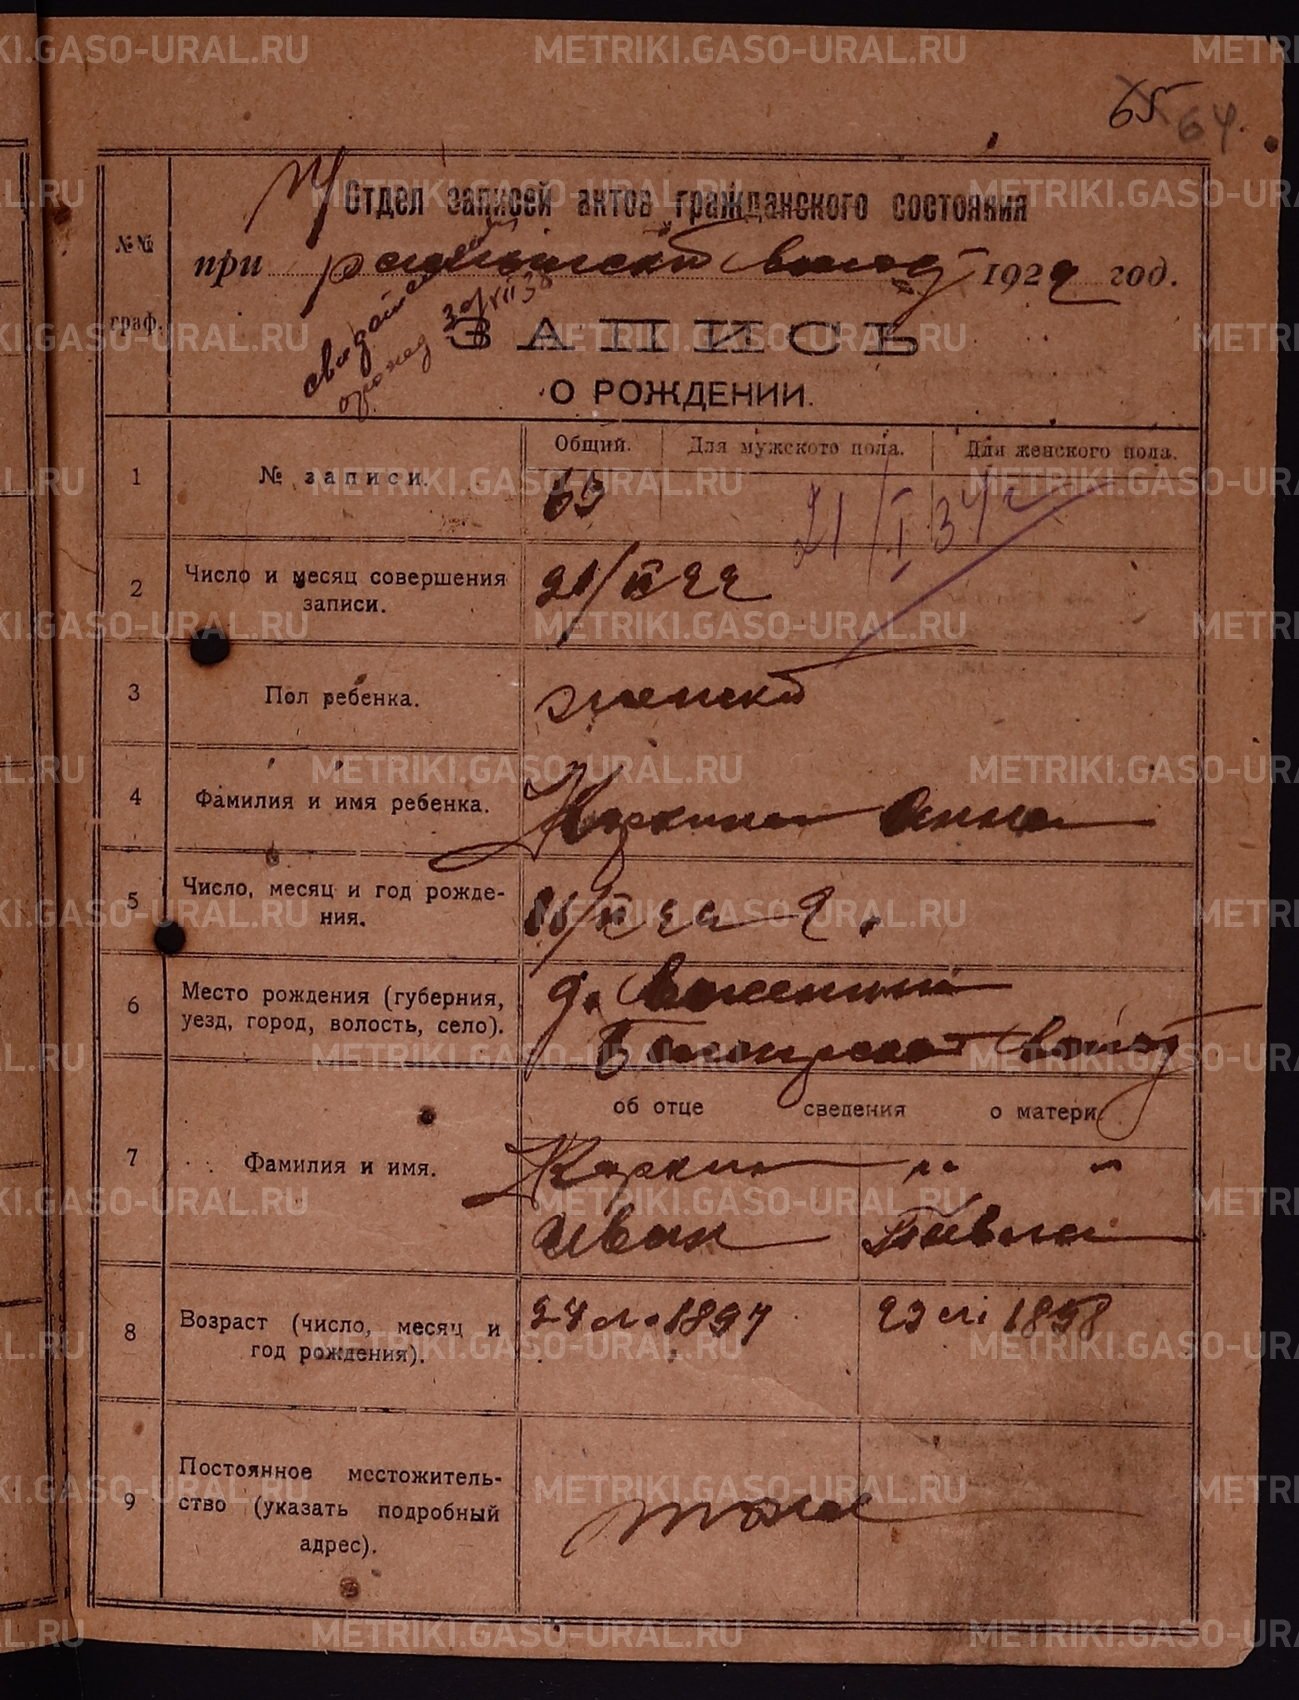 METRIKI.GASO-URAL.RU
65 64.
Отдел записей актов гражданского состояния
№№ граф.
при 1922 год.
30/VII 38
ЗАПИСЬ
О РОЖДЕНИИ.
Общий. Для мужского пола. Для женского пола.
1 № записи. 63
21/I 34 г
2 Число и месяц совершения
записи. 21/II 22
3 Пол ребенка. женск
4 Фамилия и имя ребенка. Каркина Анна
5 Число, месяц и год рожде-
ния.
6 Место рождения (губерния,
уезд, город, волость, село). д.
об отце сведения о матери.
7 Фамилия и имя. Каркин " "
Иван Павла
8 Возраст (число, месяц и
год рождения). 24 л. 1897 23 л. 1898
9 Постоянное местожитель-
ство (указать подробный
адрес). тоже